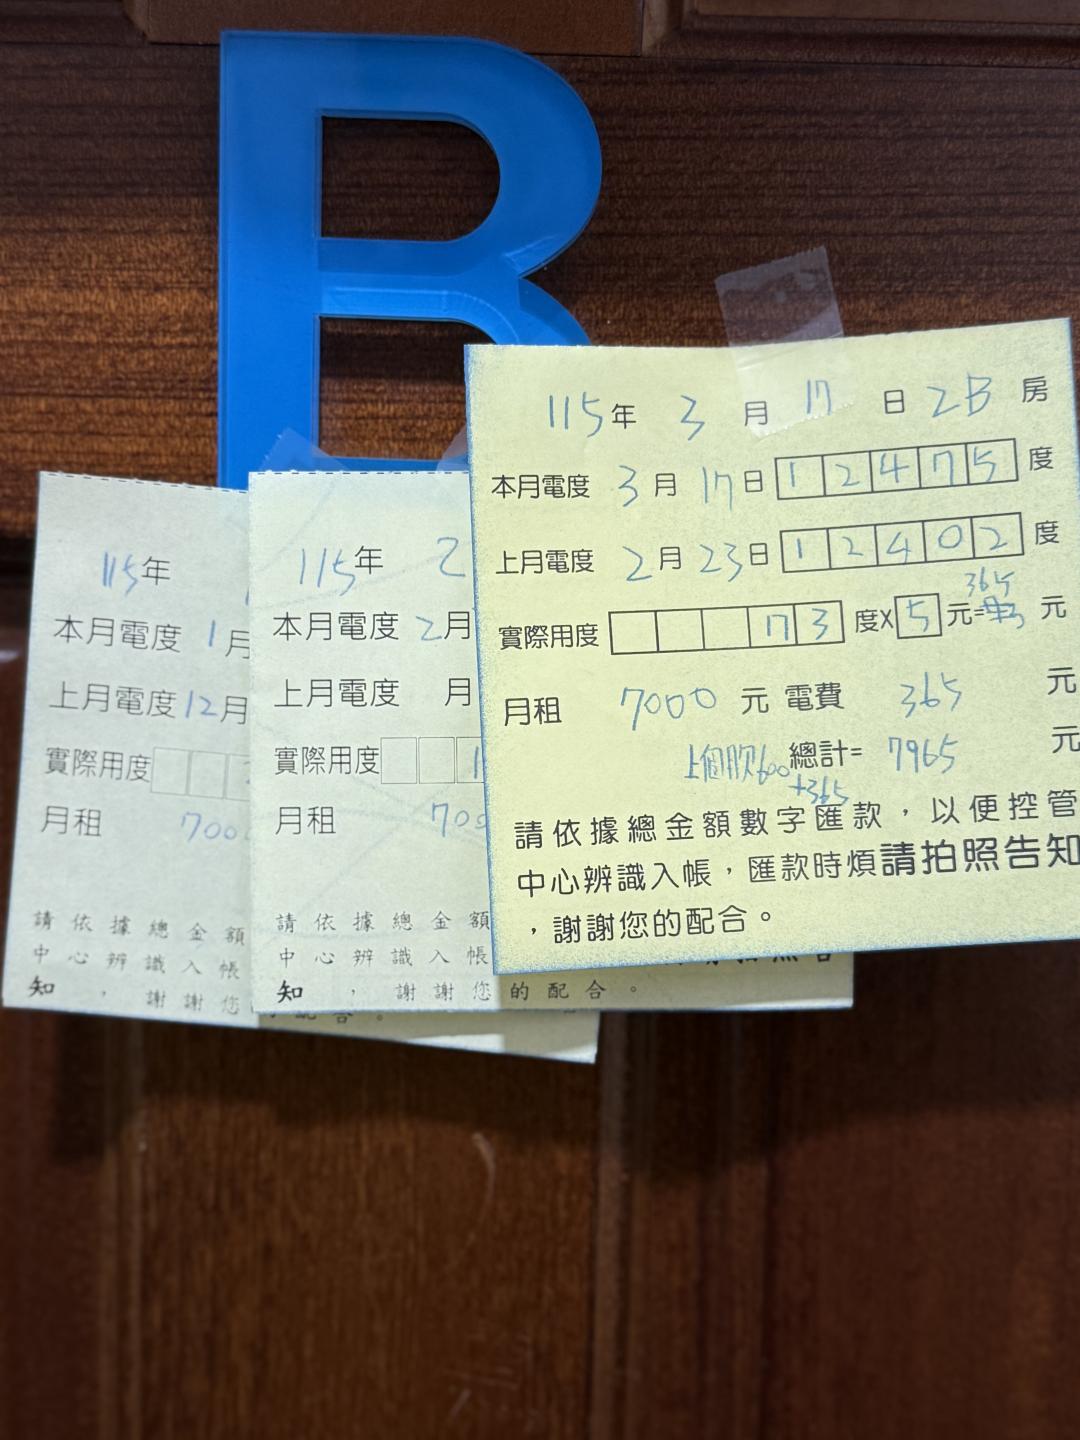 B
115年
本月電度 1月
上月電度 12月
實際用度
月租 700
請依據總金額
中心辨識入帳
知，謝謝您
115年 2
本月電度 2月
上月電度 月
實際用度 1
月租 700
請依據總金額
中心辨識入帳
知，謝謝您的配合。
115年 3月 17日 2B房
本月電度 3月 17日 12475度
上月電度 2月 23日 12402度
365
實際用度 73 度X5元= 元
月租 7000 元 電費 365 元
上個月欠600 總計= 7965 元
+365
請依據總金額數字匯款，以便控管
中心辨識入帳，匯款時煩請拍照告知
，謝謝您的配合。